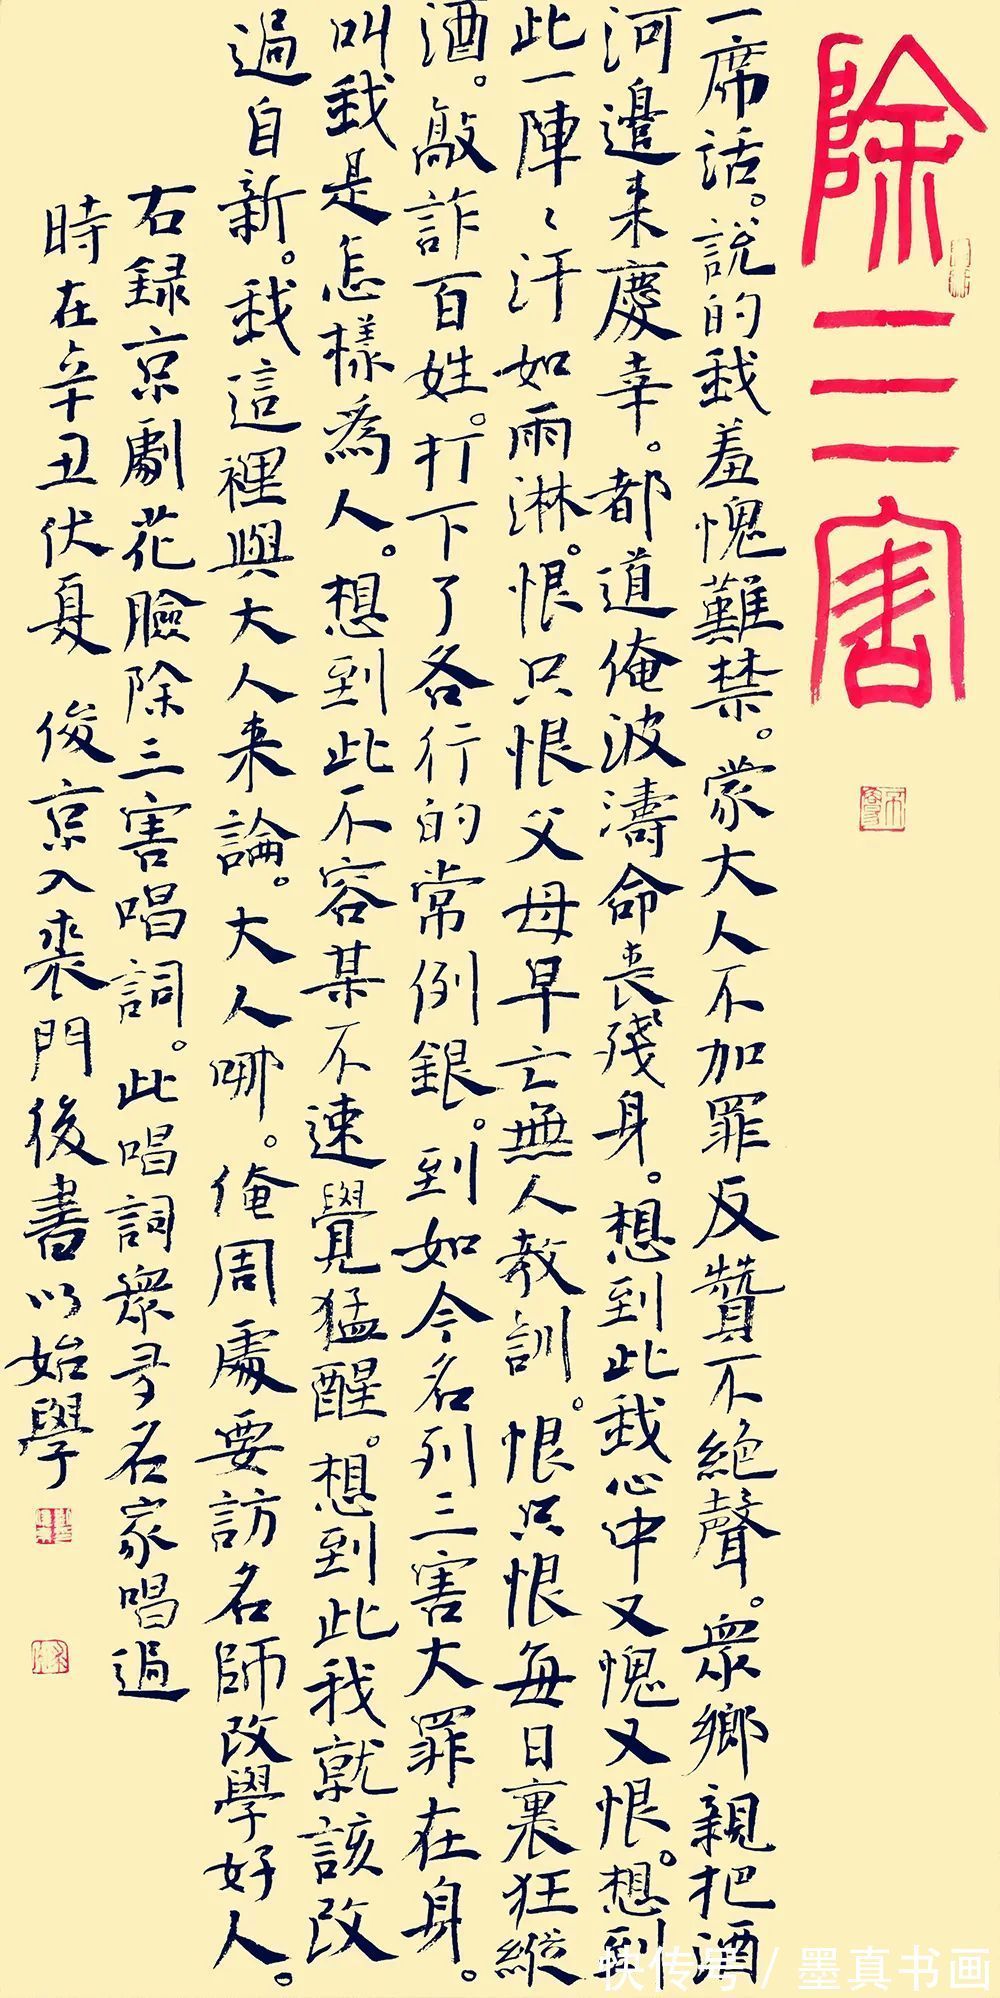 除三害
一席話。説的我羞愧難禁。蒙大人不加罪反贊不絕聲。衆鄉親把酒
河邊来慶幸。都道俺波濤命喪殘身。想到此我心中又愧又恨。想到
此一陣〻汗如雨淋。恨只恨父母早亡無人教訓。恨只恨每日裏狂縱
酒。敲詐百姓。打下了各行的常例銀。到如今名列三害大罪在身。
叫我是怎樣為人。想到此不容某不速覺猛醒。想到此我就該改
過自新。我這裡與大人来論。大人哪。俺周處要訪名師改學好人。
右録京劇花臉除三害唱詞。此唱詞衆多名家唱過
時在辛丑伏夏 俊京入裘門後書以始學
快传号 / 墨真书画